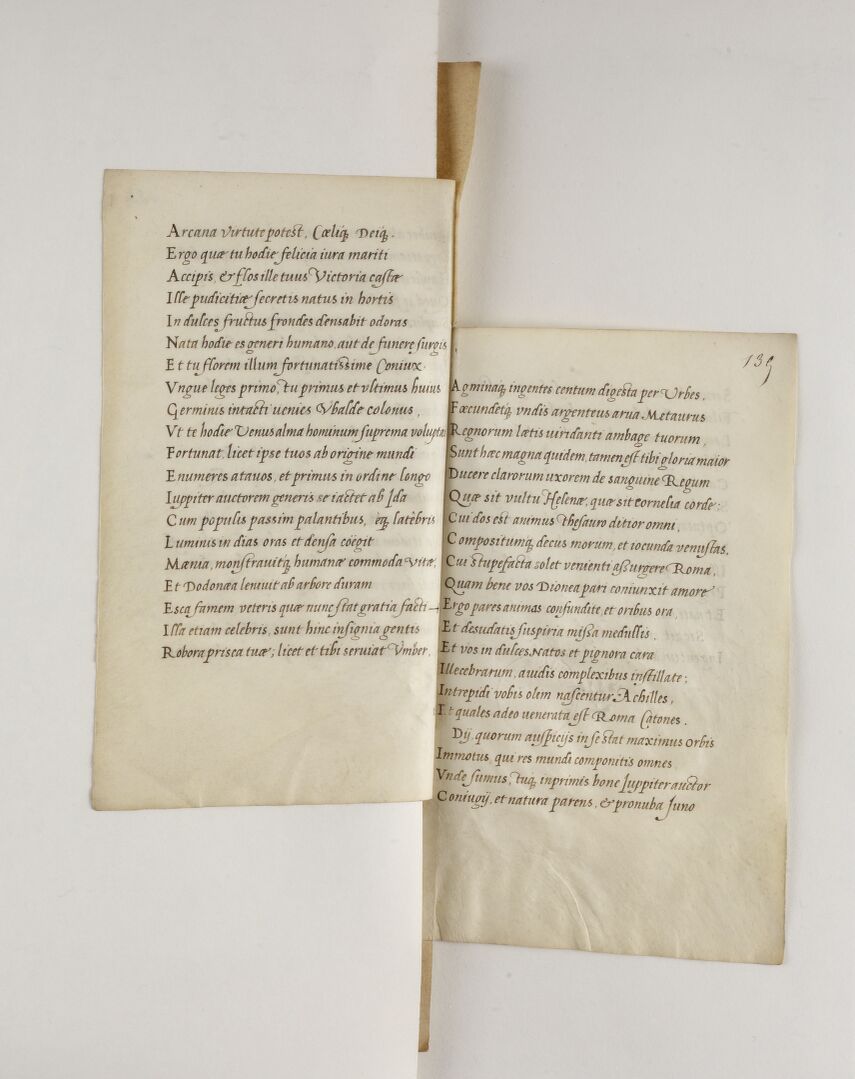 Arcana virtute potest, Cœliq; Deiq;.
Ergo quæ tu hodie felicia iura mariti
Accipis, & flos ille tuus Victoria castæ
Ille pudicitiæ secretis natus in hortis
In dulces fructus frondes densabit odoras
Nata hodie es generi humano, aut de funere surgis,
Et tu florem illum fortunatissime Coniux
Vngue leges primo, tu primus et vltimus huius
Germinis intacti uenies Vbalde colonus,
Vt te hodie Venus alma hominum suprema voluptas
Fortunat, licet ipse tuos ab origine mundi
Enumeres atauos, et primus in ordine longo
Iuppiter auctorem generis se iactet ab Ida
Cum populis passim palantibus, eq; latebris
Luminis in dias oras et densa coegit
Mænia, monstrauitq; humanæ commoda vitæ,
Et Dodonæa leniuit ab arbore duram
Esca famem veteris quæ nunc stat gratia facti
Illa etiam celebris, sunt hinc insignia gentis
Robora prisca tuæ; licet et tibi seruiat Vmber,
139
Agminaq; ingentes centum digesta per Vrbes,
Fœcundetq; vndis argenteus arua Metaurus
Regnorum lætis uiridanti ambage tuorum,
Sunt hæc magna quidem, tamen est tibi gloria maior
Ducere clarorum uxorem de sanguine Regum
Quæ sit vultu Helenæ, quæ sit Cornelia corde:
Cui dos est animus thesauro ditior omni,
Compositumq; decus morum, et iocunda venustas,
Cui stupefacta solet venienti assurgere Roma,
Quam bene vos Dionea pari coniunxit amore
Ergo pares animas confundite, et oribus ora,
Et desudatis suspiria missa medullis,
Et vos in dulces Natos et pignora cara
Illecebrarum, auidis complexibus instillate;
Intrepidi vobis olim nascentur Achilles,
Et quales adeo uenerata est Roma Catones.
Dij, quorum auspicijs in se stat maximus Orbis
Immotus, qui res mundi componitis omnes
Vnde sumus, tuq; inprimis bone Iuppiter auctor
Coniugij, et natura parens, & pronuba Juno